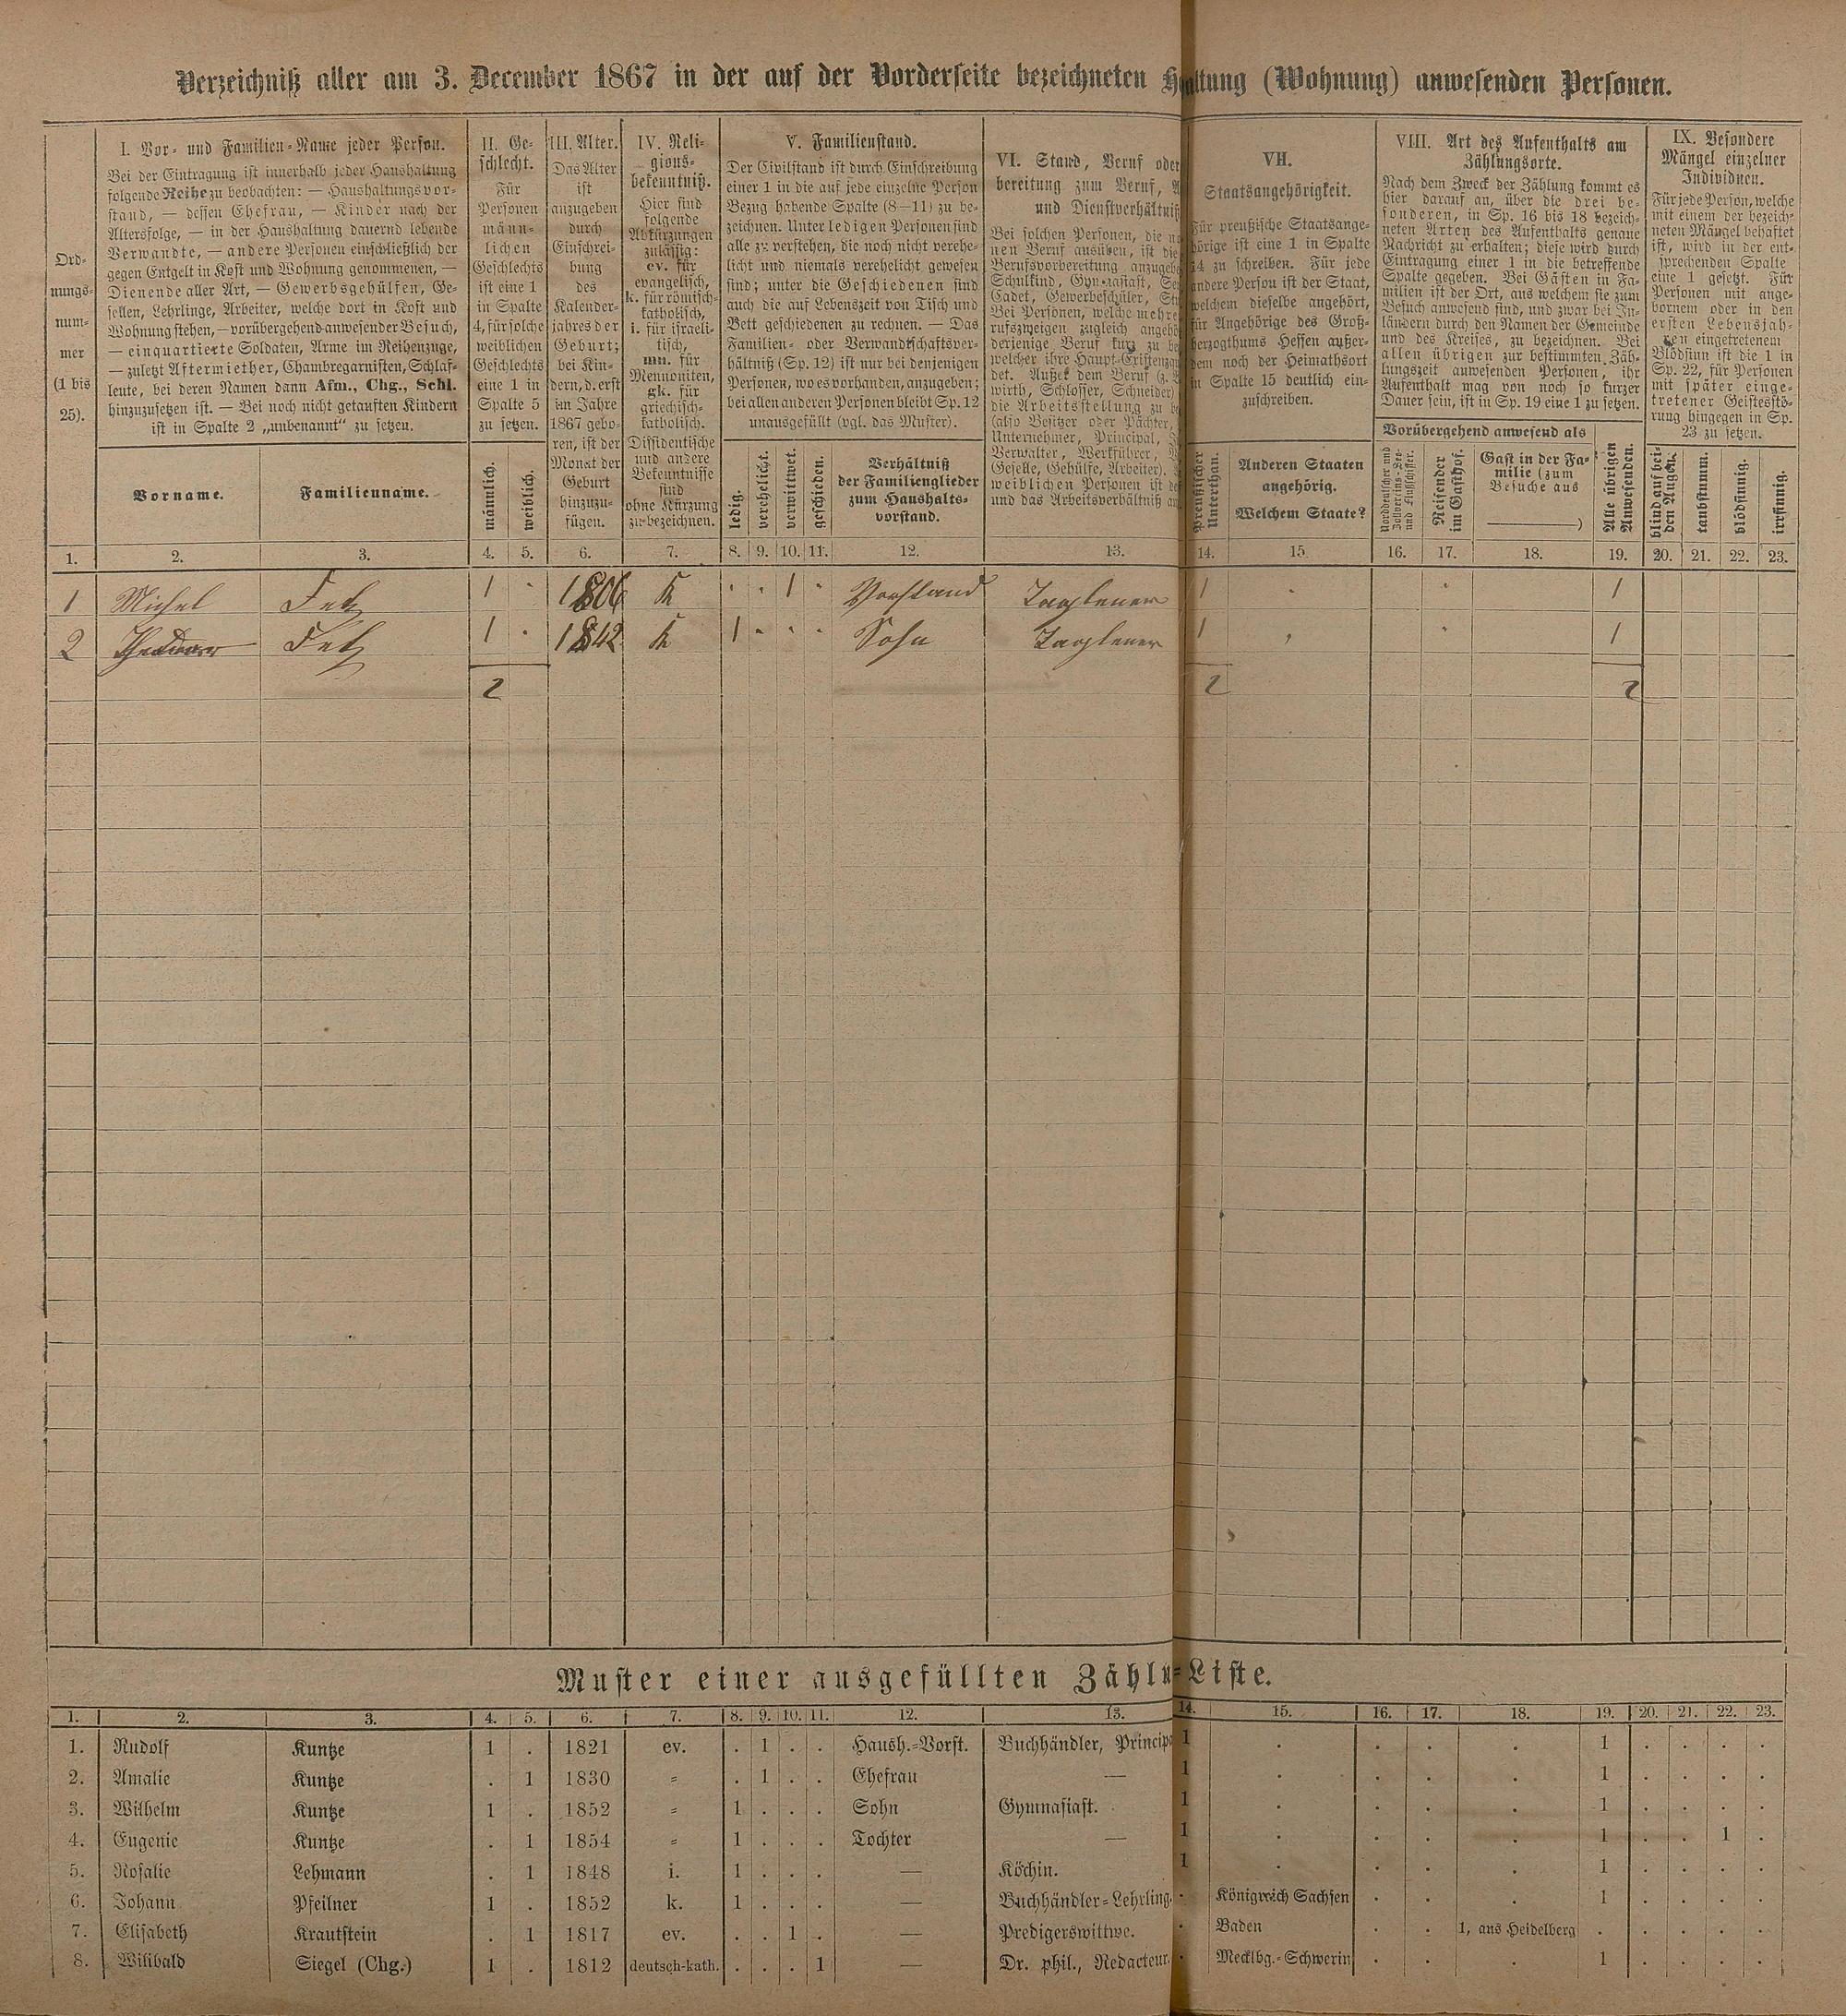 Verzeichniß aller am 3. December 1867 in der auf der Vorderseite bezeichneten Haltung (Wohnung) anwesenden Personen.
Ord-
nungs-
num-
mer
(1 bis
25).
I. Vor- und Familien-Name jeder Person.
Bei der Eintragung ist innerhalb jeder Haushaltung
folgende Reihe zu beobachten: — Haushaltungsvor-
stand, — dessen Ehefrau, — Kinder nach der
Altersfolge, — in der Haushaltung dauernd lebende
Verwandte, — andere Personen einschließlich der
gegen Entgelt in Kost und Wohnung genommenen, —
Dienende aller Art, — Gewerbsgehülfen, Ge-
sellen, Lehrlinge, Arbeiter, welche dort in Kost und
Wohnung stehen, — vorübergehend anwesender Besuch,
— einquartierte Soldaten, Arme im Reihenzuge,
— zuletzt Aftermiether, Chambregarnisten, Schlaf-
leute, bei deren Namen dann Afm., Chg., Schl.
hinzuzusetzen ist. — Bei noch nicht getauften Kindern
ist in Spalte 2 „unbenannt“ zu setzen.
Vorname.
Familienname.
II. Ge-
schlecht.
Für
Personen
männ-
lichen
Geschlechts
ist eine 1
in Spalte
4, für solche
weiblichen
Geschlechts
eine 1 in
Spalte 5
zu setzen.
männlich.
weiblich.
III. Alter.
Das Alter
ist
anzugeben
durch
Einschrei-
bung
des
Kalender-
jahres der
Geburt;
bei Kin-
dern, d. erst
im Jahre
1867 gebo-
ren, ist der
Monat der
Geburt
hinzuzu-
fügen.
IV. Reli-
gions-
bekenntniß.
Hier sind
folgende
Abkürzungen
zulässig:
ev. für
evangelisch,
k. für römisch-
katholisch,
i. für israeli-
tisch,
mn. für
Mennoniten,
gk. für
griechisch-
katholisch.
Dissidentische
und andere
Bekenntnisse
sind
ohne Kürzung
zu bezeichnen.
V. Familienstand.
Der Civilstand ist durch Einschreibung
einer 1 in die auf jede einzelne Person
Bezug habende Spalte (8—11) zu be-
zeichnen. Unter ledigen Personen sind
alle zu verstehen, die noch nicht verehe-
licht und niemals verehelicht gewesen
sind; unter die Geschiedenen sind
auch die auf Lebenszeit von Tisch und
Bett geschiedenen zu rechnen. — Das
Familien- oder Verwandtschaftsver-
hältniß (Sp. 12) ist nur bei denjenigen
Personen, wo es vorhanden, anzugeben;
bei allen anderen Personen bleibt Sp. 12
unausgefüllt (vgl. das Muster).
ledig.
verehelicht.
verwittwet.
geschieden.
Verhältniß
der Familienglieder
zum Haushalts-
vorstand.
VI. Stand, Beruf oder
bereitung zum Beruf,
und Dienstverhältniß
Bei solchen Personen, die
nen Beruf ausüben, ist die
Berufsvorbereitung anzugebe
Schulkind, Gymnasiast,
Cadet, Gewerbeschüler,
Bei Personen, welche mehre
rufszweigen zugleich angehö
derjenige Beruf kurz zu be
welcher ihre Haupt-Existenz
det. Außer dem Beruf
wirth, Schlosser, Schneider)
die Arbeitsstellung zu
(also Besitzer oder Pächter,
Unternehmer, Principal,
Verwalter, Werkführer,
Geselle, Gehülfe, Arbeiter).
weiblichen Personen ist
und das Arbeitsverhältniß
VII.
Staatsangehörigkeit.
Für preußische Staatsange-
hörige ist eine 1 in Spalte
14 zu schreiben. Für jede
andere Person ist der Staat,
welchem dieselbe angehört,
für Angehörige des Groß-
herzogthums Hessen außer-
dem noch der Heimathsort
in Spalte 15 deutlich ein-
zuschreiben.
Preußischer
Unterthan.
Anderen Staaten
angehörig.
Welchem Staate?
VIII. Art des Aufenthalts am
Zählungsorte.
Nach dem Zweck der Zählung kommt es
hier darauf an, über die drei be-
sonderen, in Sp. 16 bis 18 bezeich-
neten Arten des Aufenthalts genaue
Nachricht zu erhalten; diese wird durch
Eintragung einer 1 in die betreffende
Spalte gegeben. Bei Gästen in Fa-
milien ist der Ort, aus welchem sie zum
Besuch anwesend sind, und zwar bei In-
ländern durch den Namen der Gemeinde
und des Kreises, zu bezeichnen. Bei
allen übrigen zur bestimmten Zäh-
lungszeit anwesenden Personen, ihr
Aufenthalt mag von noch so kurzer
Dauer sein, ist in Sp. 19 eine 1 zu setzen.
Vorübergehend anwesend als
Norddeutscher und
Zollvereins-See-
und Flußschiffer.
Reisender
im Gasthof.
Gast in der Fa-
milie (zum
Besuche aus
)
Alle übrigen
Anwesenden.
IX. Besondere
Mängel einzelner
Individuen.
Für jede Person, welche
mit einem der bezeich-
neten Mängel behaftet
ist, wird in der ent-
sprechenden Spalte
eine 1 gesetzt. Für
Personen mit ange-
bornem oder in den
ersten Lebensjah-
ren eingetretenem
Blödsinn ist die 1 in
Sp. 22, für Personen
mit später einge-
tretener Geistesstö-
rung hingegen in Sp.
23 zu setzen.
blind auf bei-
den Augen.
taubstumm.
blödsinnig.
irrsinnig.
1. 2. 3. 4. 5. 6. 7. 8. 9. 10. 11. 12. 13. 14. 15 16. 17. 18. 19. 20. 21. 22. 23.
1 Michel Fetz 1 · 1806 K · · 1 · Vorstand Taglöner 1 · · 1
2 Fetz 1 · 1842 K 1 · · · Sohn Taglöner 1 · · 1
2 2 2
Muster einer ausgefüllten Zählu=Liste.
1. 2. 3. 4. 5. 6. 7. 8. 9. 10. 11. 12. 13. 14. 15. 16. 17. 18. 19. 20. 21. 22. 23.
1. Rudolf Kuntze 1 . 1821 ev. . 1 . . Haush.-Vorst. Buchhändler, Princip 1 . . . . 1 . . . .
2. Amalie Kuntze . 1 1830 " . 1 . . Ehefrau — 1 . . . . 1 . . . .
3. Wilhelm Kuntze 1 . 1852 " 1 . . . Sohn Gymnasiast. 1 . . . . 1 . . . .
4. Eugenie Kuntze . 1 1854 " 1 . . . Tochter — 1 . . . . 1 . . 1 .
5. Rosalie Lehmann . 1 1848 i. 1 . . . — Köchin. 1 . . . . 1 . . . .
6. Johann Pfeilner 1 . 1852 k. 1 . . . — Buchhändler-Lehrling. . Königreich Sachsen . . . 1 . . . .
7. Elisabeth Krautstein . 1 1817 ev. . . 1 . — Predigerswittwe. . Baden . . 1, aus Heidelberg . . . . .
8. Wilibald Siegel (Chg.) 1 . 1812 deutsch-kath. . . . 1 — Dr. phil., Redacteur. . Mecklbg.-Schwerin . . . 1 . . . .